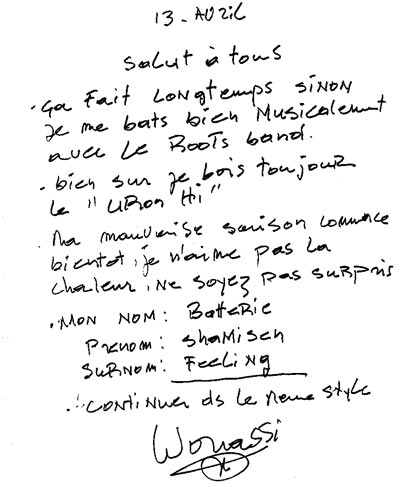 13. Avril
Salut à tous
. ça Fait Longtemps sinon
je me bats bien Musicalement
avec Le Roots band.
- bien sur je bois toujour
le "URon Hi"
. Ma mauvaise saison commence
bientot, je n'aime pas La
chaleur, Ne soyez pas surpris
. Mon Nom: Batterie
Prenom: shaMisen
SurNom: FeeLiNg
. Continuer ds le meme style
Wouassi